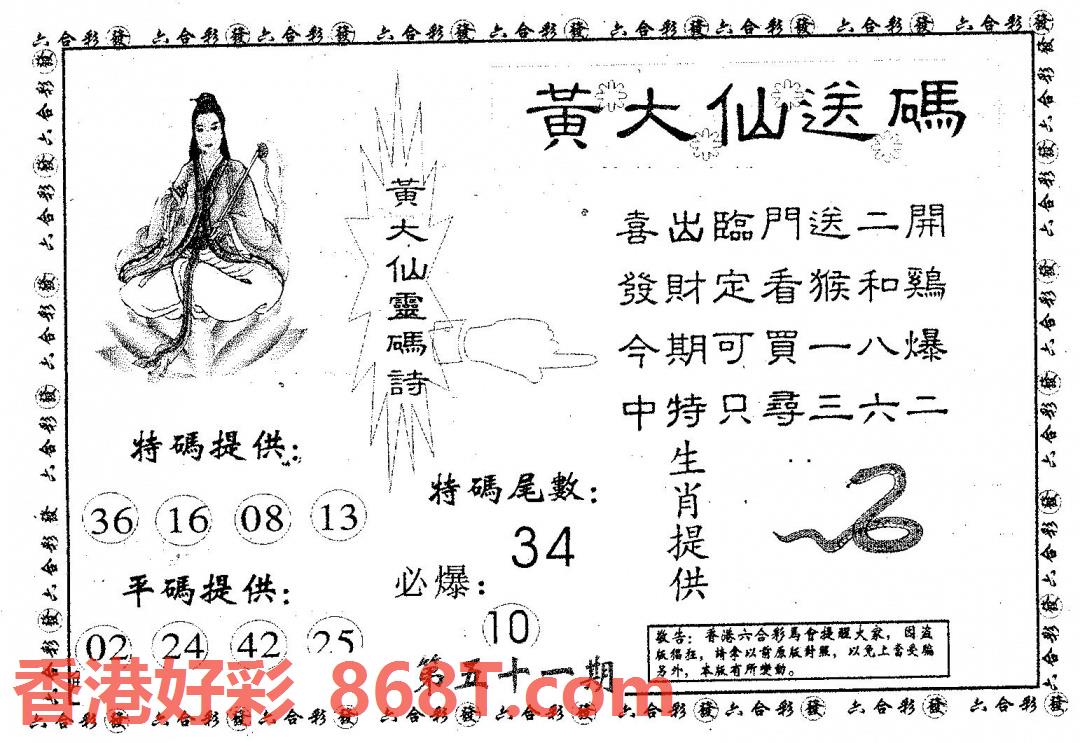 六合彩發 六合彩發 六合彩發 六合彩發 六合彩發 六合彩發 六合彩發 六合彩發 六合彩發
黃大仙送碼
黃大仙靈碼詩
喜出臨門送二開
發財定看猴和鷄
今期可買一八爆
中特只尋三六二
特碼提供:
36 16 08 13
平碼提供:
02 24 42 25
特碼尾數:
34
必爆:
10
第五十一期
生肖提供
敬告:香港六合彩馬會提醒大家,因盜
版猖狂,請拿以前原版對照,以免上當受騙
另外,本版有所變動。
香港好彩 868T.com
六合彩發 六合彩發 六合彩發 六合彩發 六合彩發 六合彩發 六合彩發 六合彩發 六合彩發